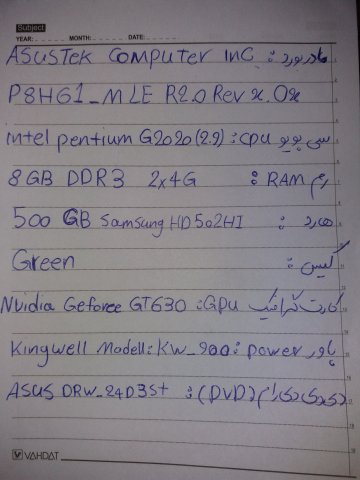 Subject:
YEAR: MONTH: DATE:
مادربورد : ASUSTEK COMPUTER INC
P8H61_MLE R2.0 Rev x.0x
سی پی یو CPU : intel pentium G2020 (2.9)
رم RAM : 8GB DDR3 2x4G
هارد : 500 GB Samsung HD502HI
کیس : Green
کارت گرافیک GPU : Nvidia Geforce GT630
پاور power : Kingwell Modell : KW_900
دی وی دی رام (DVD) : ASUS DRW_24D3St
VAHDAT